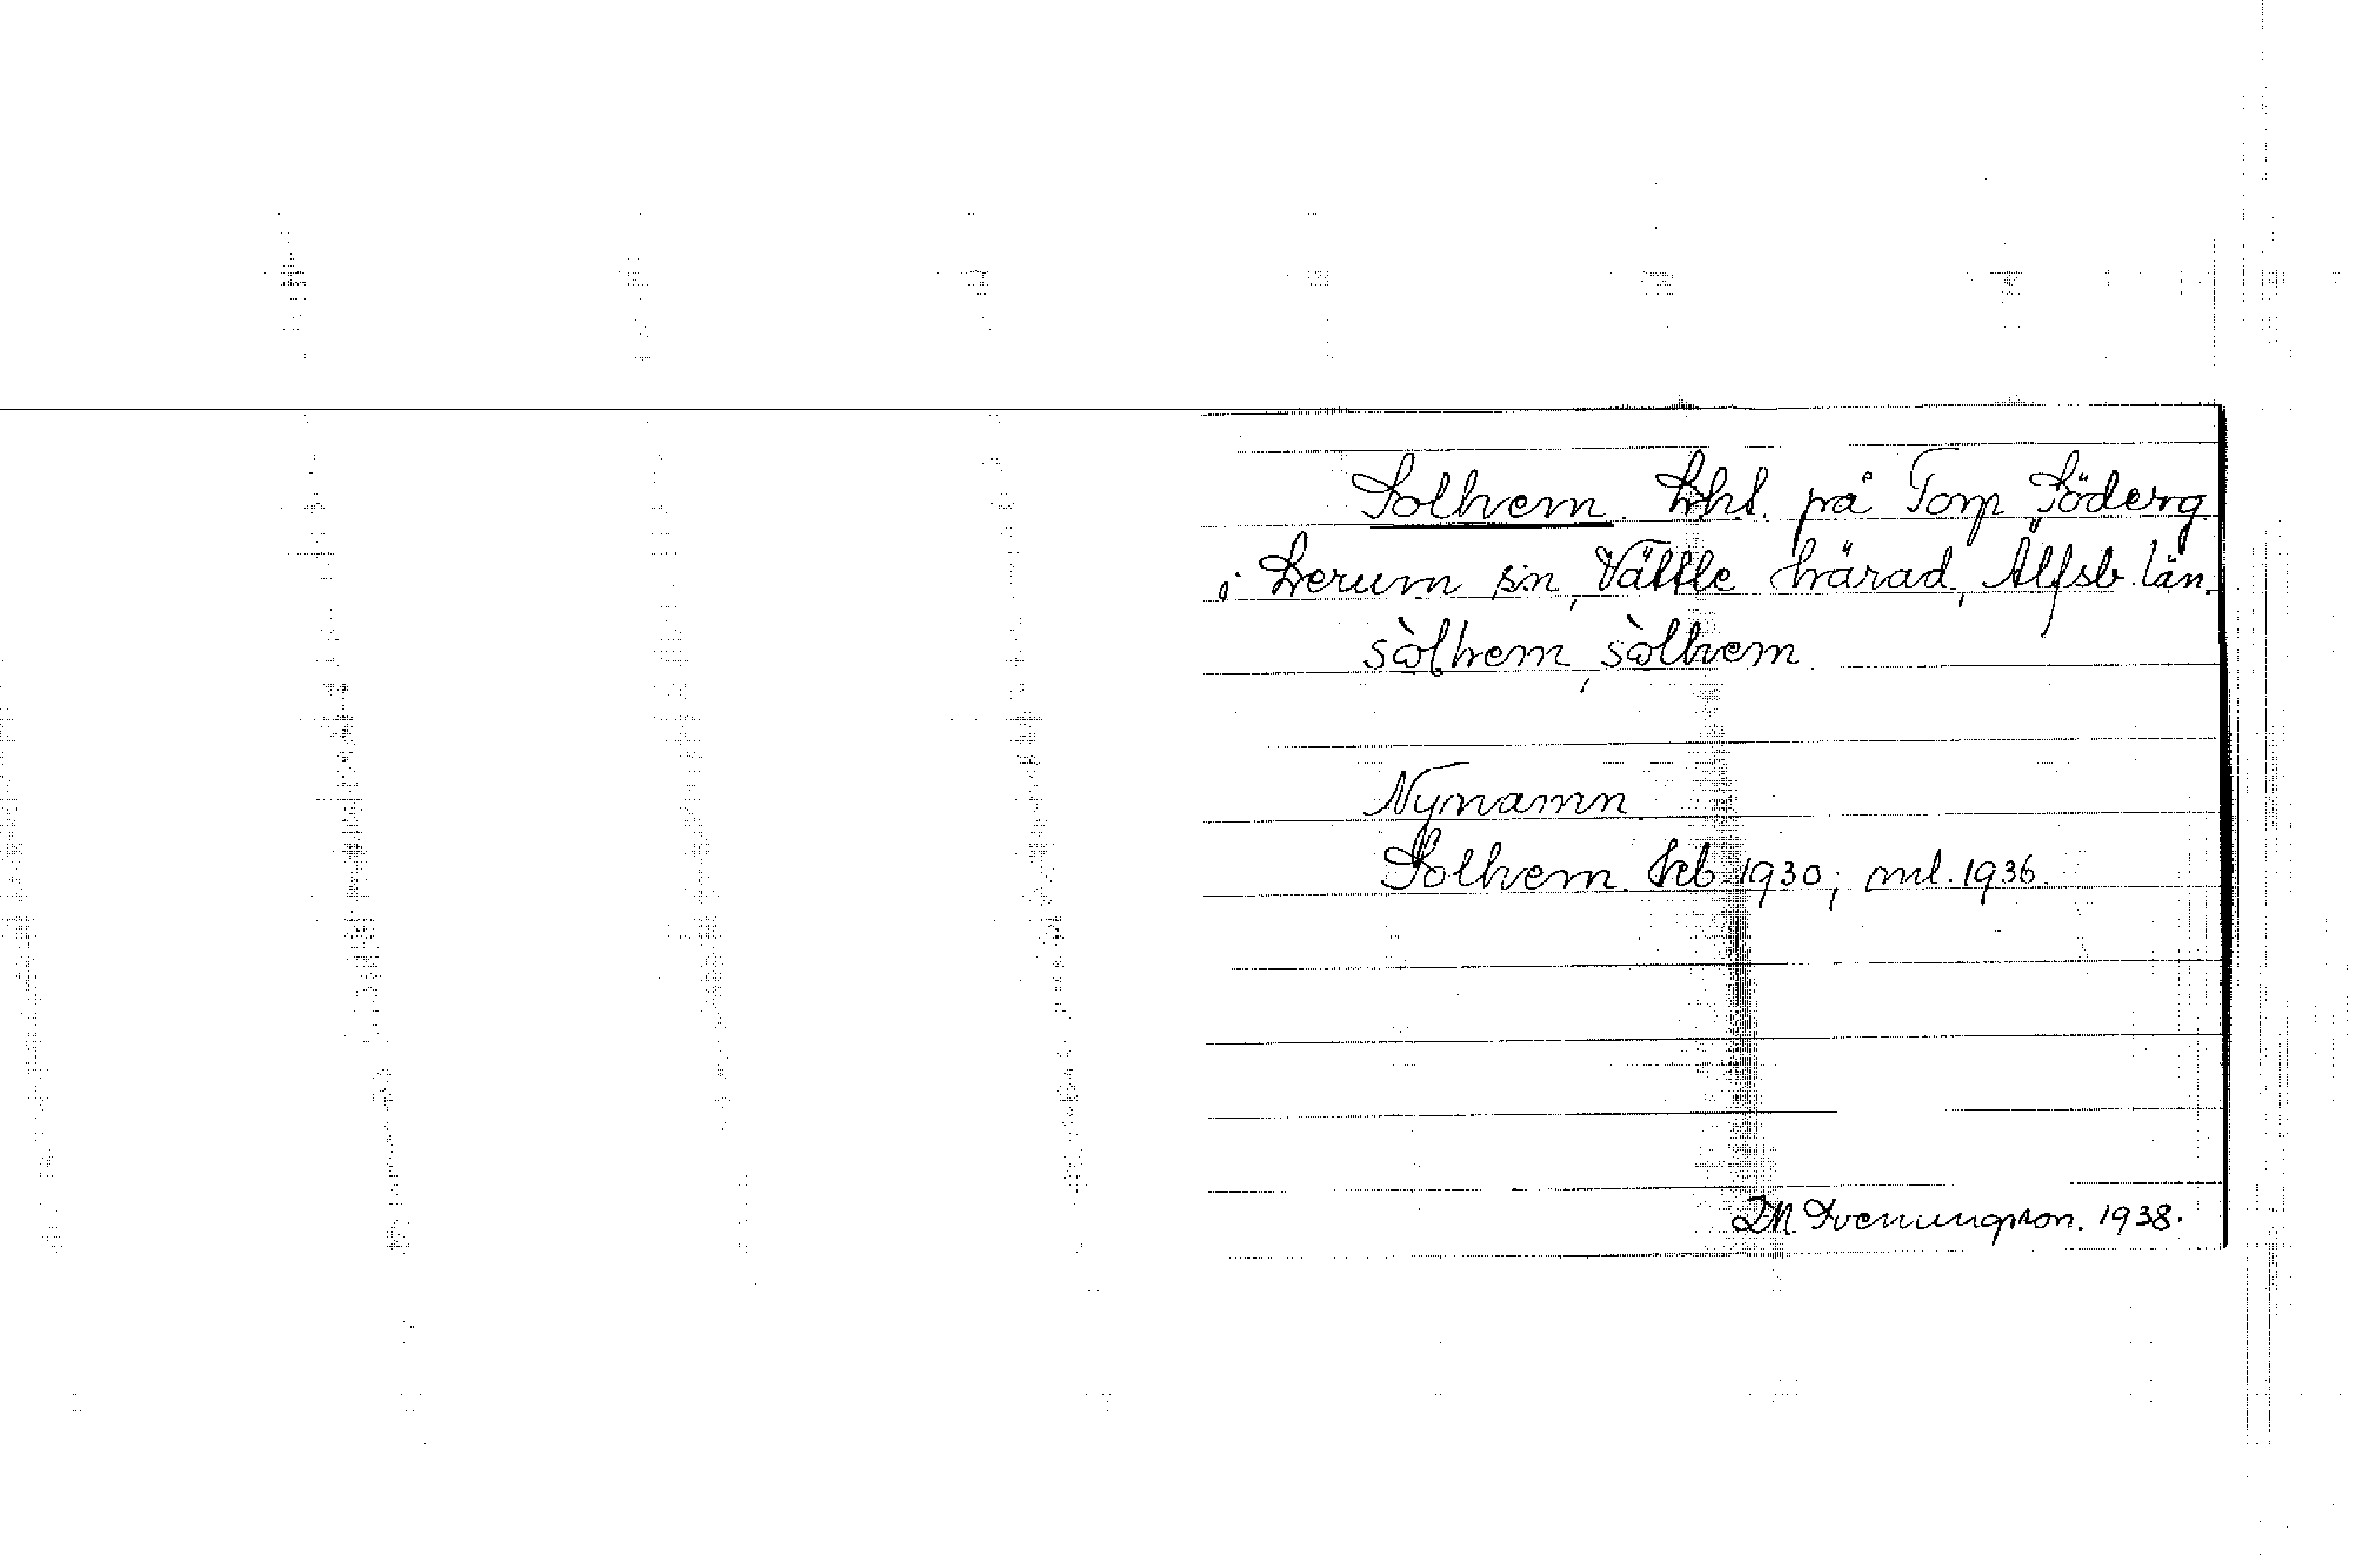 Solhem. Lht. på Torp Söderg
i Lerum sn, Vättle härad, Älfsb. län.
sòlhem, sòlhem
Nynamn
Solhem. Feb 1930; ml. 1936.
Svenungsson. 1938.